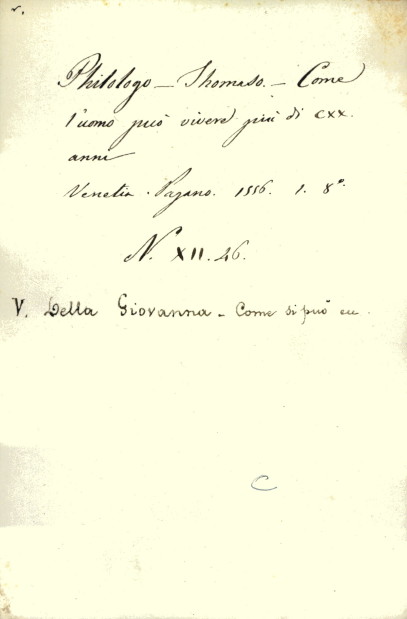 Philologo – Thomaso. – Come
l'uomo può vivere più di CXX.
anni
Venetia. Pagano. 1556. 1. 8º.
N. XII. 46.
V. Della Giovanna – Come si può
C